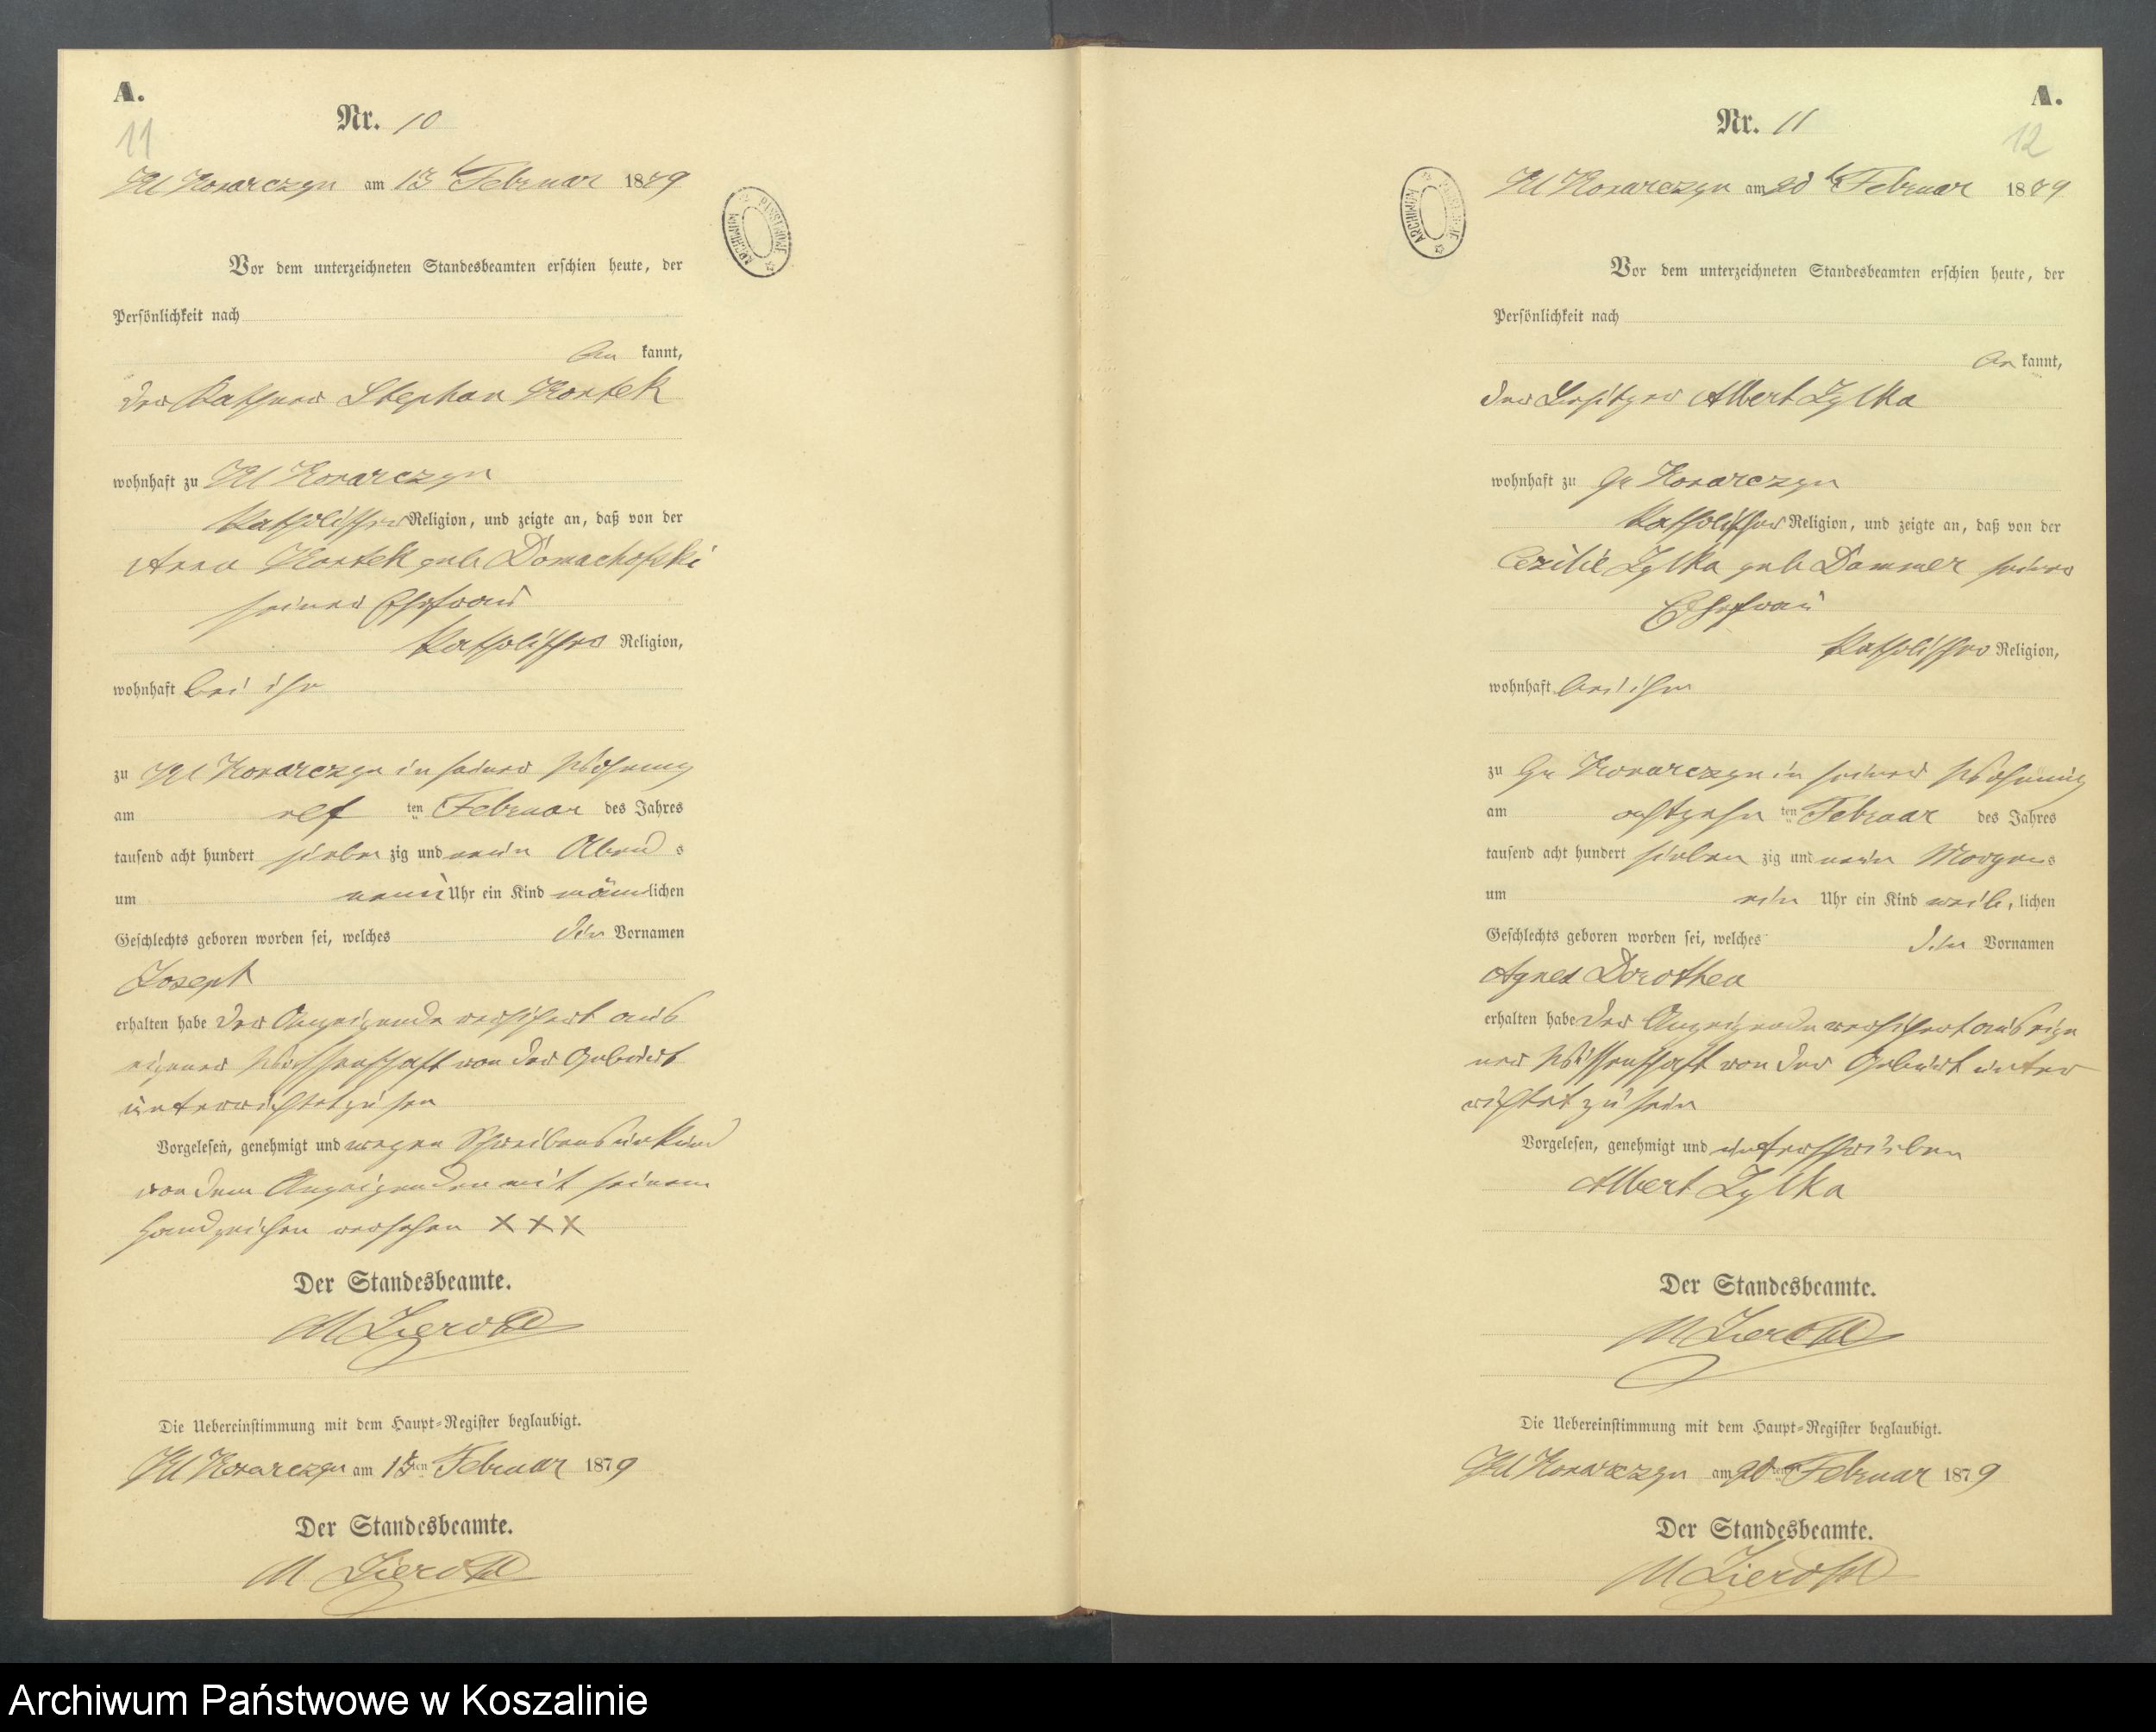 A.
11
Nr. 10
Kl Konarczyn am 13 t Februar 1879
Vor dem unterzeichneten Standesbeamten erschien heute, der
Persönlichkeit nach
be kannt,
der Kathner Stephan Kortek
wohnhaft zu Kl Konarczyn
katholischer Religion, und zeigte an, daß von der
Anna Kortek geb Domachofski
seiner Ehefrau
katholischer Religion,
wohnhaft bei ihm
zu Kl Konarczyn in seiner Wohnung
am elf ten Februar des Jahres
tausend acht hundert sieben zig und neun Abend s
um neun Uhr ein Kind männlichen
Geschlechts geboren worden sei, welches den Vornamen
Joseph
erhalten habe Der Anzeigende versichert aus
eigener Wissenschaft von der Geburt
unterrichtet zu sein
Vorgelesen, genehmigt und wegen Schreibensunkund
von dem Anzeigenden mit seinem
Handzeichen versehen XXX
Der Standesbeamte.
Die Uebereinstimmung mit dem Haupt-Register beglaubigt.
Kl Konarczyn am 13ten Februar 1879
Der Standesbeamte.
A.
12
Nr. 11
Kl Konarczyn am 20 t Februar 1879
Vor dem unterzeichneten Standesbeamten erschien heute, der
Persönlichkeit nach
be kannt,
der Besitzer Albert Zylka
wohnhaft zu Gr Konarczyn
katholischer Religion, und zeigte an, daß von der
Cezilie Zylka geb Dammer seiner
Ehefrau
katholischer Religion,
wohnhaft bei ihm
zu Gr Konarczyn in seiner Wohnung
am achtzehn ten Februar des Jahres
tausend acht hundert sieben zig und neun Morgens
um ein Uhr ein Kind weib lichen
Geschlechts geboren worden sei, welches den Vornamen
Agnes Dorothea
erhalten habe Der Anzeigende versichert aus eige
ner Wissenschaft von der Geburt unter
richtet zu sein
Vorgelesen, genehmigt und unterschrieben
Albert Zylka
Der Standesbeamte.
Die Uebereinstimmung mit dem Haupt-Register beglaubigt.
Kl Konarczyn am 20ten Februar 1879
Der Standesbeamte.
Archiwum Państwowe w Koszalinie